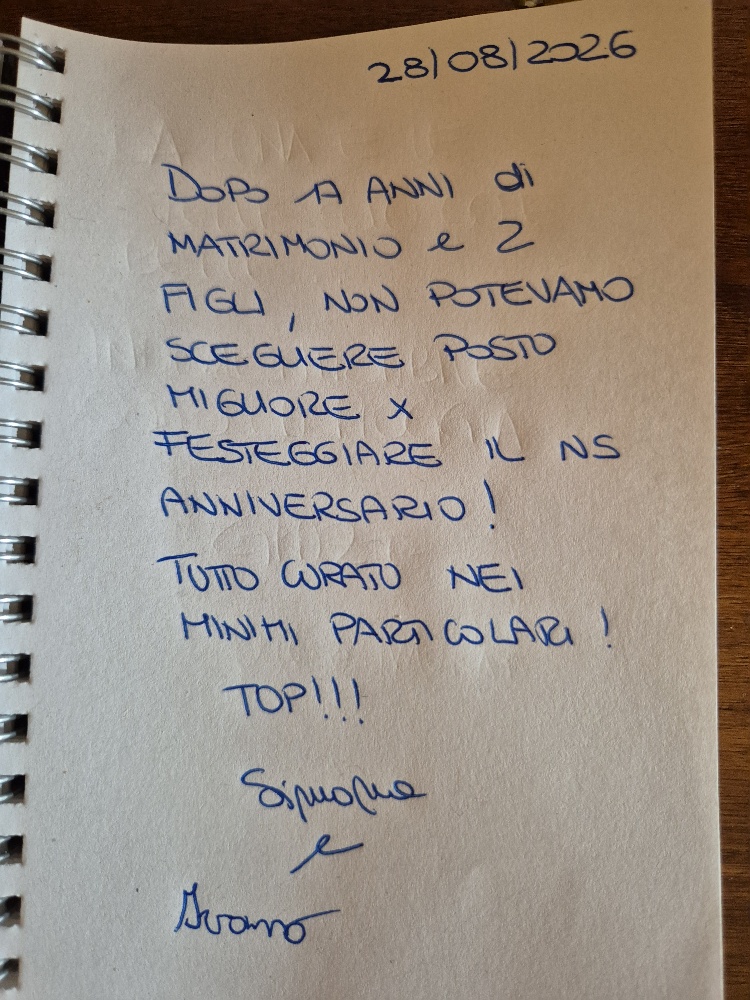 28/08/2026
DOPO ANNI di
MATRIMONIO e 2
FIGLI, NON POTEVAMO
SCEGLIERE POSTO
MIGLIORE X
FESTEGGIARE IL NS
ANNIVERSARIO!
TUTTO CURATO NEI
MINIMI PARTICOLARI!
TOP!!!
Simone
e
Ivano